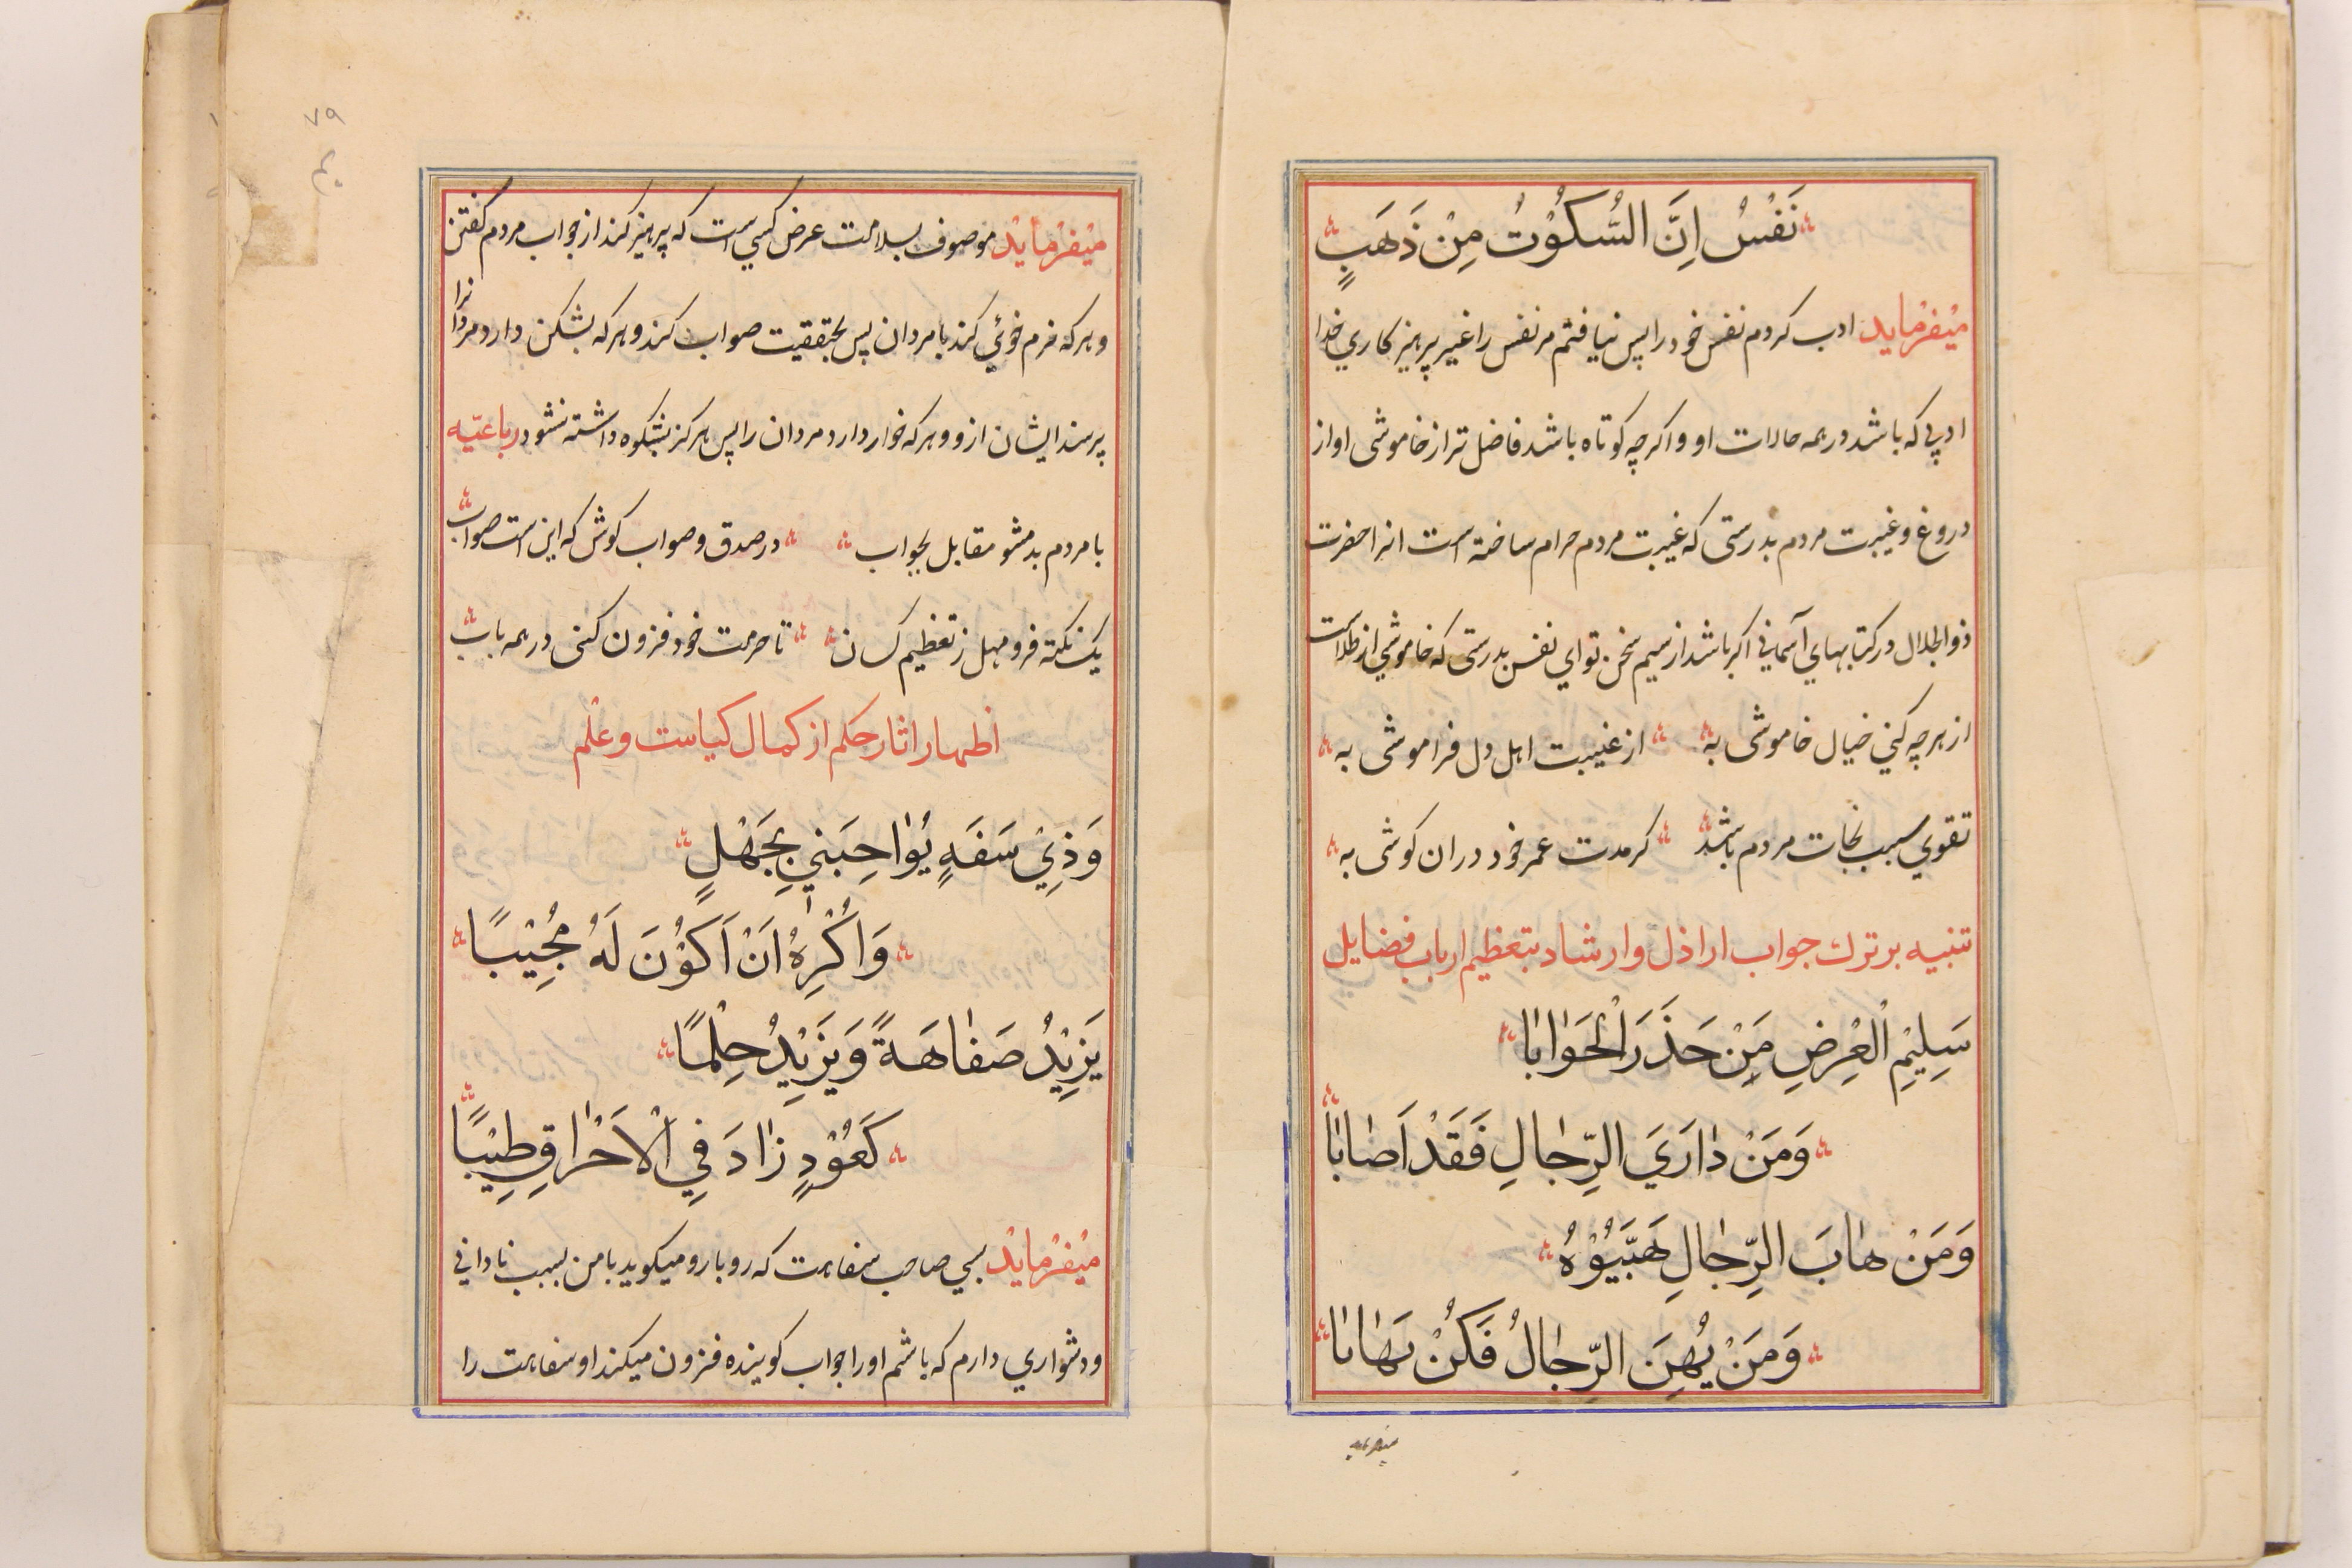 نَفْسُ اِنَّ السُّكُوْتُ مِنْ ذَهَبٍ
میفرماید ادب کردم نفس خود را پس نیافتم مر نفس را غیر پرهیزکاری خدا
ادبی که باشد در همه حالات او و اگر چه کوتاه باشد فاضل تر از خاموشی او از
دروغ و غیبت مردم بدرستی که غیبت مردم حرام ساخته است انرا حضرت
ذوالجلال در کتابهای آسمانی اگر باشد از سیم سخن تو ای نفس بدرستی که خاموشی از طلاست
از هر چه کنی خیال خاموشی به از غیبت اهل دل فراموشی به
تقوی سبب نجات مردم باشد کر مدت عمر خود دران کوشی به
تنبیه بر ترك جواب اراذل وارشاد بتعظیم ارباب فضایل
سَلِيْمِ الْعِرْضِ مَنْ حَذَرَ الْحَوَابَا
وَمَنْ دَارَيَ الرِّجَالِ فَقَدْ اَصَابَا
وَمَنْ هَابَ الرِّجَالِ تَهَيَّبُوْهُ
وَمَنْ يُهِنَ الرِّجَالُ فَكُنْ يَهَابَا
میفرماید
۷۹
میفرماید موصوف بسلامت عرض کسی است که پرهیز کند از جواب مردم کفتن
و هر که نرم خوئی کند با مردان پس بتحقیقیت صواب کند و هر که بشکن دارد مردانرا
پرسند ایشان ازو و هر که خوار دارد مردان را پس هرکز بشکوه داشته نشود رباعیّه
با مردم بد مشو مقابل بجواب در صدق و صواب کوش که این است صواب
یک نکته فرو مهل ز تعظیم کسان تا حرمت خود فزون کنی در همه باب
اظهار اثار حلم از کمال کیاست و علم
وَذِيْ سَفَهٍ يُوَاحِبَنيِ بِجَهْلٍ
وَاُكْرِهُ اَنْ اَكُوْنَ لَهُ مُجِيْبًا
يَزِيْدُ صَفَاهَةً وَيَزِيْدُ حِلْمًا
كَعُوْدٍ زَادَ فِي الْاَحْرَاقِ طِيْبًا
میفرماید بسی صاحب سفاهت که رو بارو میکوید با من بسبب نادانی
و دشواری دارم که باشم او را جواب کوینده فزون میکند او سفاهت را